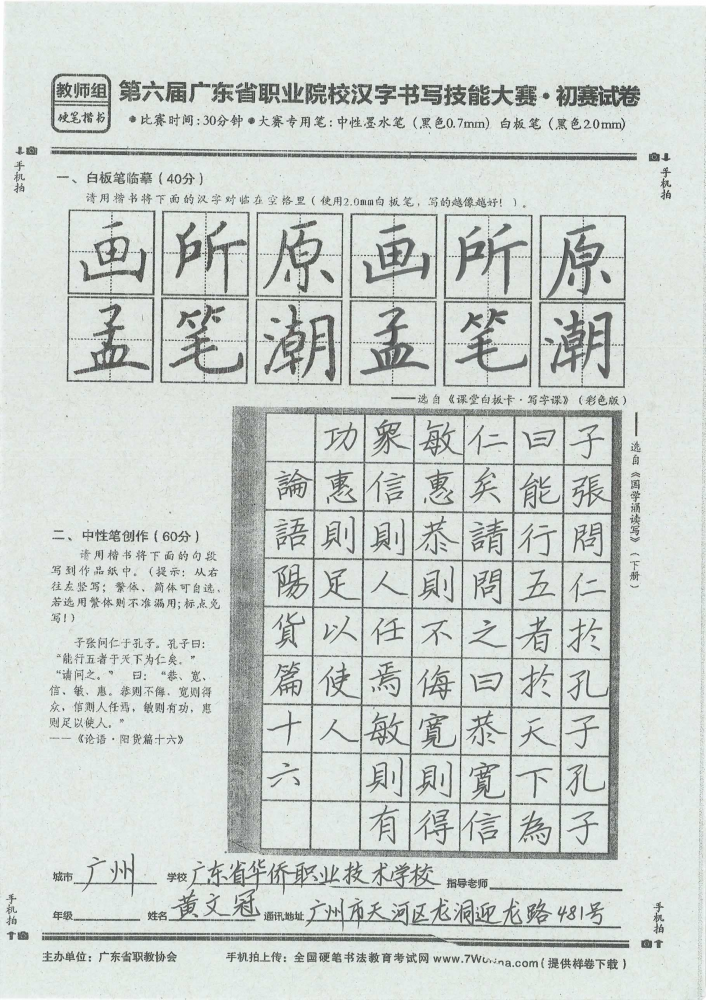 教师组
硬笔楷书
第六届广东省职业院校汉字书写技能大赛·初赛试卷
●比赛时间:30分钟●大赛专用笔:中性墨水笔(黑色0.7mm) 白板笔(黑色2.0mm)
手机拍
手机拍
一、白板笔临摹(40分)
请用楷书将下面的汉字对临在空格里(使用2.0mm白板笔,写的越像越好!)。
画所原画所原
孟笔潮孟笔潮
——选自《课堂白板卡·写字课》(彩色版)
——选自《国学诵读写》(下册)
子張問仁於孔子孔子
曰能行五者於天下為
仁矣請問之曰恭寬信
敏惠恭則不侮寬則得
衆信則人任焉敏則有
功惠則足以使人
論語陽貨篇十六
二、中性笔创作(60分)
请用楷书将下面的句段
写到作品纸中。(提示:从右
往左竖写;繁体、简体可自选,
若选用繁体则不准漏用;标点免
写!)
子张问仁于孔子。孔子曰:
“能行五者于天下为仁矣。”
“请问之。” 曰:“恭、宽、
信、敏、惠。恭则不侮,宽则得
众,信则人任焉,敏则有功,惠
则足以使人。”
——《论语·阳货篇十六》
城市 广州 学校 广东省华侨职业技术学校 指导老师
年级 姓名 黄文冠 通讯地址 广州市天河区龙洞迎龙路481号
手机拍
手机拍
主办单位:广东省职教协会 手机拍上传:全国硬笔书法教育考试网 (提供样卷下载)